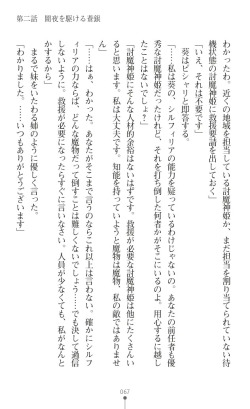 第二話　闇夜を駆ける蒼銀
わかったわ。近くの地域を担当している討魔神姫か、まだ担当を割り当てられていない待
機状態の討魔神姫に救援要請を出しておくわ」
「いえ、それは不要です」
葵はピシャリと即答する。
「討魔神姫にそんな人材的余裕はないはずです。救援が必要な討魔神姫は他にたくさんい
ることでしょうし。私は大丈夫です。知能を持っていようと魔物は魔物、私の敵ではありませ
ん」
「……私は葵の、シルフィリアの能力を疑っているわけじゃないのよ。あなたの前任者も優
秀な討魔神姫だったけれど、それを打ち倒した何者かがそこにいるのよ。用心するに越し
たことはないでしょう？」
「……」
「……はぁ、わかった。あなたがそこまで言うのならこれ以上は言わない。確かにシルフ
ィリアの力ならば、どんな魔物だって倒すことは難しくないでしょう……でも決して過信
しないように。救援が必要になったらすぐに言いなさい。人員が少なくても、私がなんと
かするから」
まるで妹をいたわる姉のように優しく言った。
「わかりました。……いつもありがとうございます」
067